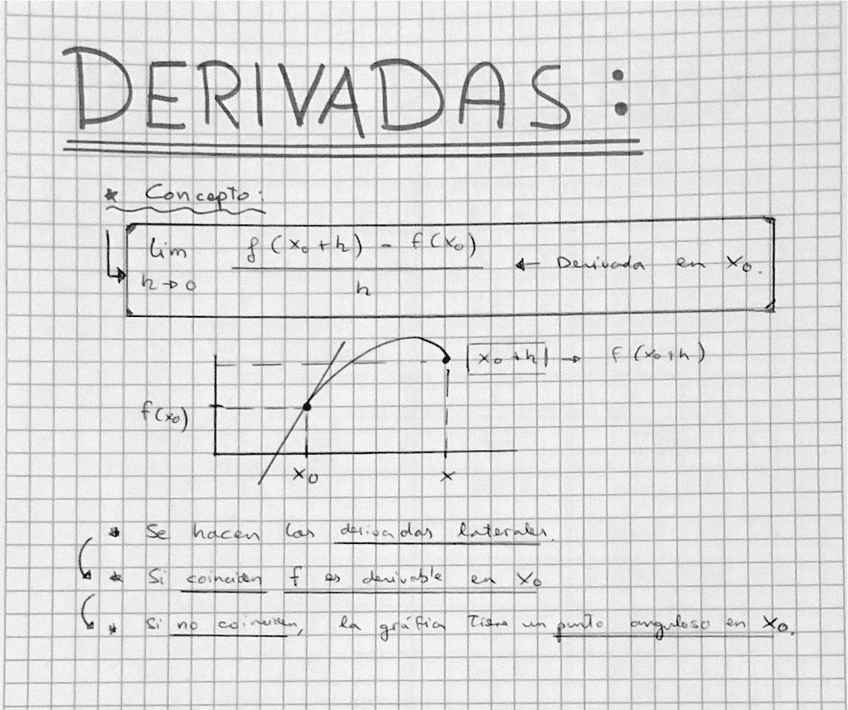 DERIVADAS:
* Concepto:
lim h→0 f(x₀+h) - f(x₀) / h ← Derivada en x₀.
x₀+h → f(x₀+h)
f(x₀)
x₀ x
* Se hacen las derivadas laterales.
* Si coinciden f es derivable en x₀
* Si no coinciden, la gráfica tiene un punto anguloso en x₀.